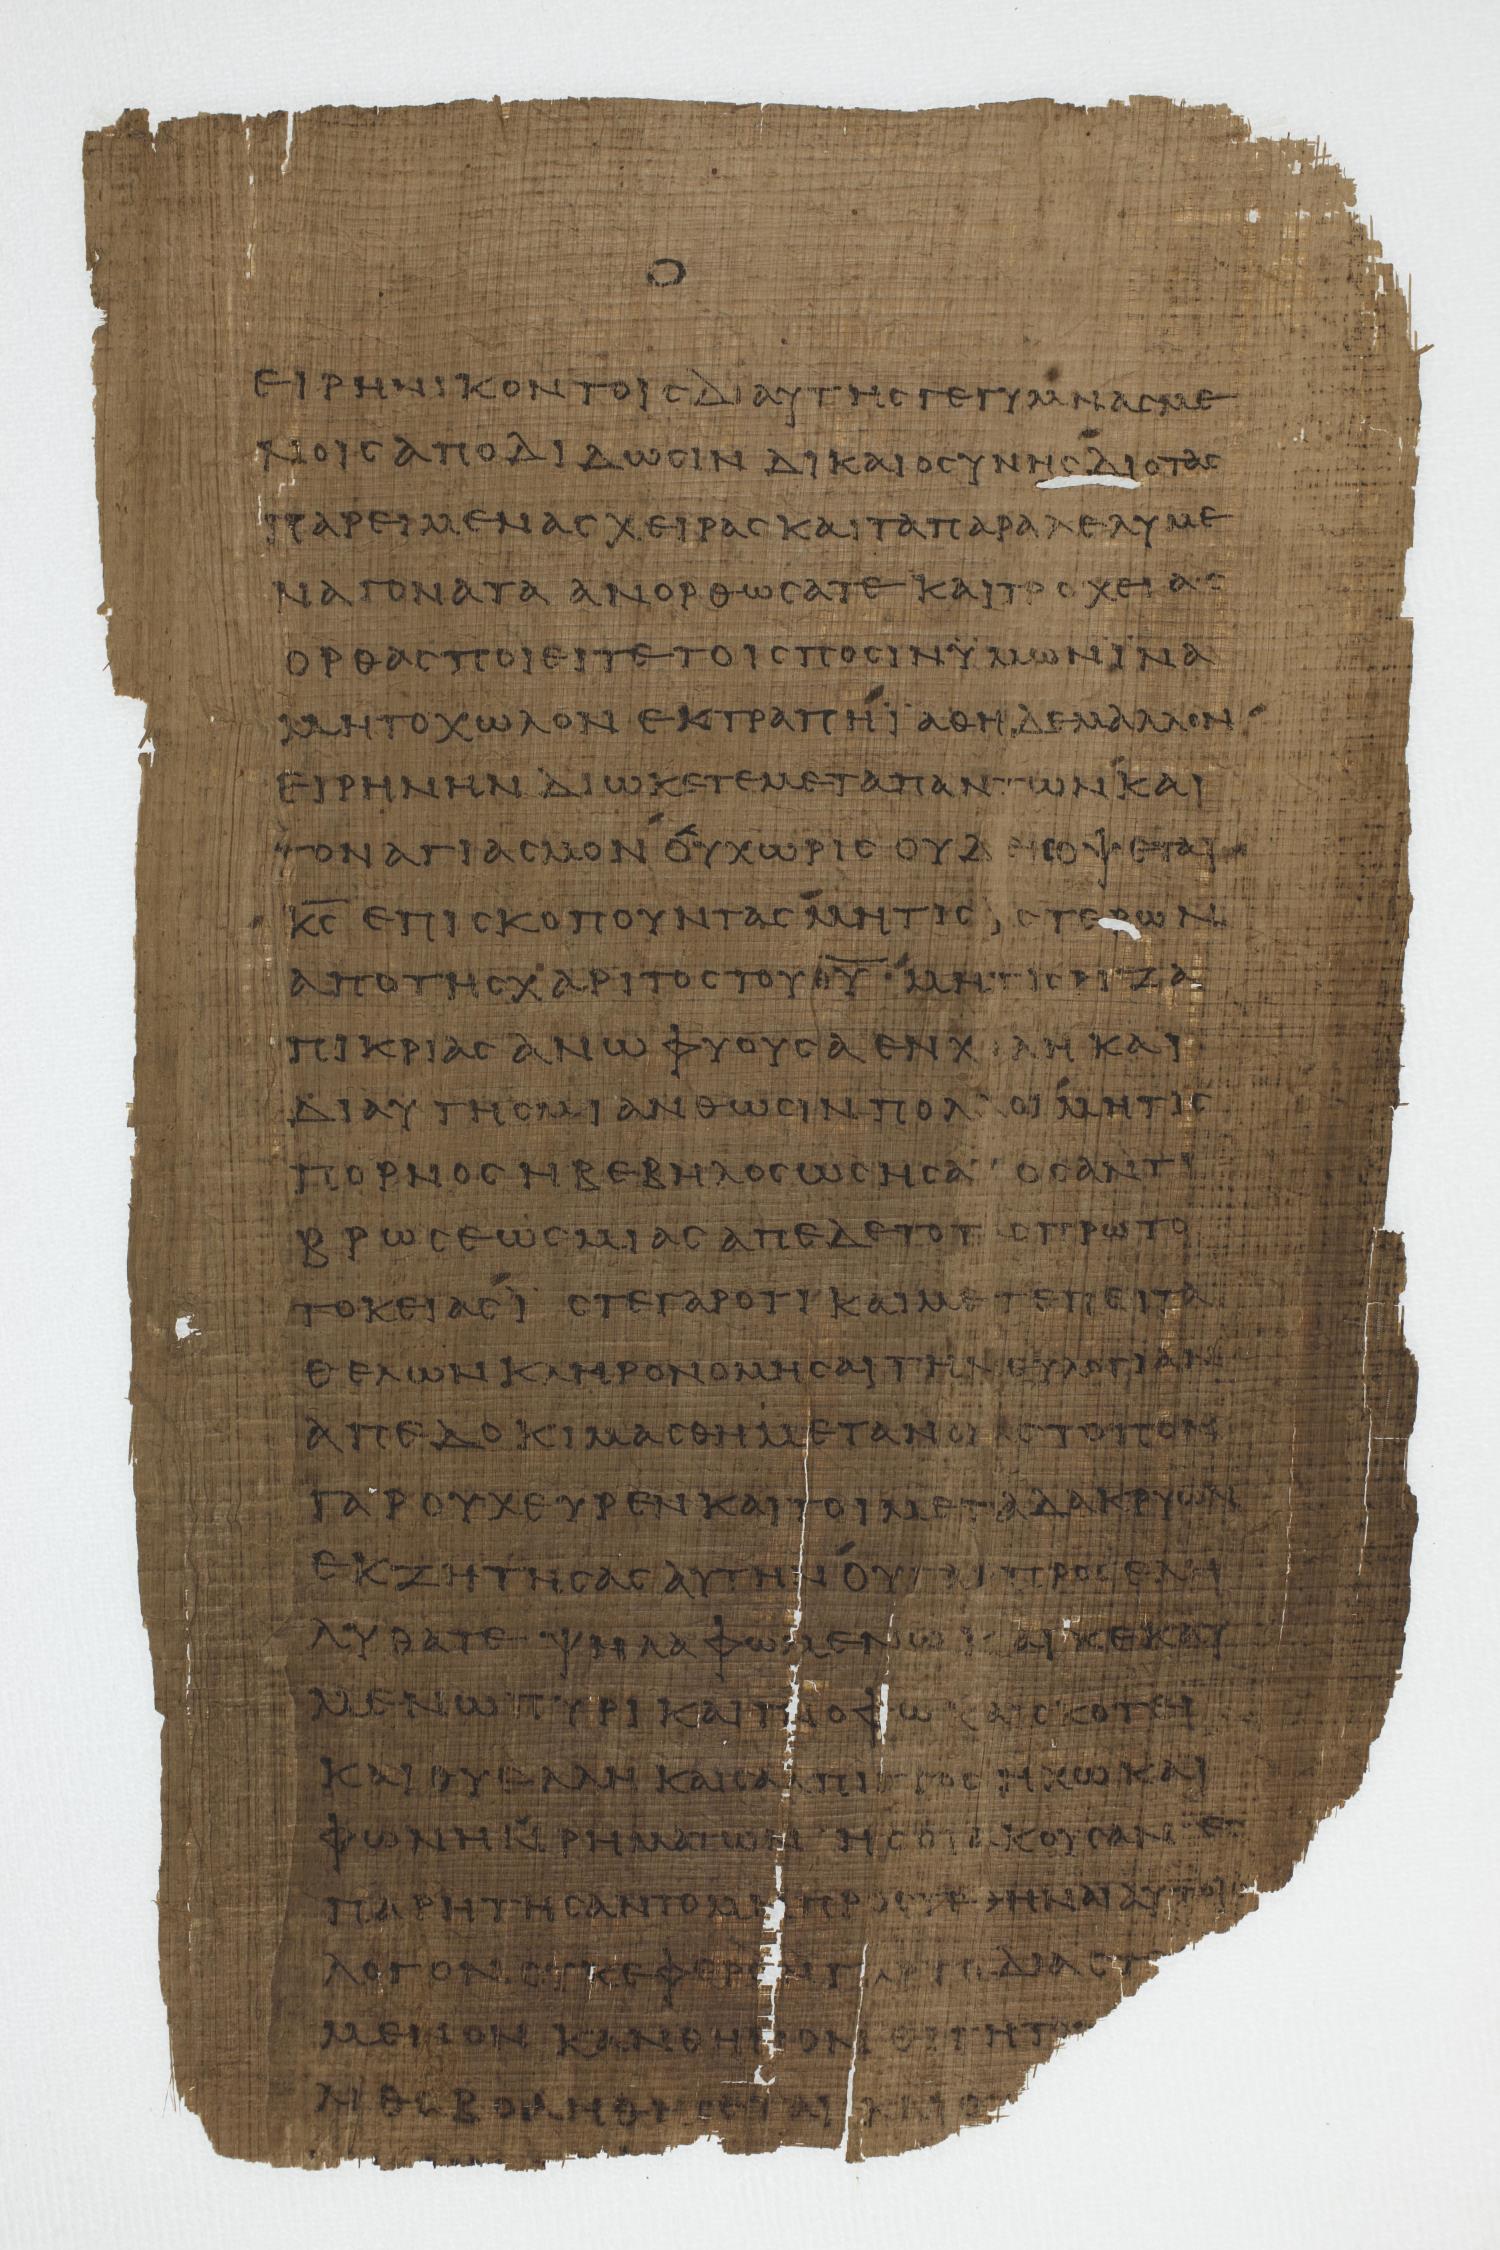 Ο
ΕΙΡΗΝΙΚΟΝΤΟΙϹΔΙΑΥΤΗϹΓΕΓΥΜΝΑϹΜΕ
ΝΟΙϹΑΠΟΔΙΔΩϹΙΝ ΔΙΚΑΙΟϹΥΝΗϹ ΔΙΟΤΑϹ
ΠΑΡΕΙΜΕΝΑϹΧΕΙΡΑϹΚΑΙΤΑΠΑΡΑΛΕΛΥΜΕ
ΝΑΓΟΝΑΤΑ ΑΝΟΡΘΩϹΑΤΕ ΚΑΙΤΡΟΧΕΙΑϹ
ΟΡΘΑϹΠΟΙΕΙΤΕΤΟΙϹΠΟϹΙΝΫΜΩΝΪΝΑ
ΜΗΤΟΧΩΛΟΝ ΕΚΤΡΑΠΗ ΪΑΘΗΔΕΜΑΛΛΟΝ
ΕΙΡΗΝΗΝ ΔΙΩΚΕΤΕΜΕΤΑΠΑΝΤΩΝ ΚΑΙ
ΤΟΝΑΓΙΑϹΜΟΝ ΟΥΧΩΡΙϹ ΟΥΔΕΙϹΟΨΕΤΑΙ
Κ̅Ϲ̅ ΕΠΙϹΚΟΠΟΥΝΤΑϹ ΜΗΤΙϹ ΥϹΤΕΡΩΝ
ΑΠΟΤΗϹΧΑΡΙΤΟϹΤΟΥ Θ̅Υ̅ ΜΗΤΙϹΡΙΖΑ
ΠΙΚΡΙΑϹ ΑΝΩ ΦΥΟΥϹΑ ΕΝΧΟΛΗ ΚΑΙ
ΔΙΑΥΤΗϹΜΙΑΝΘΩϹΙΝΠΟΛΛΟΙ ΜΗΤΙϹ
ΠΟΡΝΟϹ ΗΒΕΒΗΛΟϹΩϹΗϹΑΥ ΟϹΑΝΤΙ
ΒΡΩϹΕΩϹΜΙΑϹ ΑΠΕΔΕΤΟΤΑϹΠΡΩΤΟ
ΤΟΚΕΙΑϹ ΪϹΤΕΓΑΡΟΤΙ ΚΑΙΜΕΤΕΠΕΙΤΑ
ΘΕΛΩΝ ΚΛΗΡΟΝΟΜΗϹΑΙΤΗΝΕΥΛΟΓΙΑΝ
ΑΠΕΔΟΚΙΜΑϹΘΗΜΕΤΑΝΟΙΑϹΤΟΠΟΝ
ΓΑΡΟΥΧΕΥΡΕΝΚΑΙΤΟΙΜΕΤΑΔΑΚΡΥΩΝ
ΕΚΖΗΤΗϹΑϹΑΥΤΗΝ ΟΥΓΑΡ ΠΡΟϹΕΛΗ
ΛΥΘΑΤΕ ΨΗΛΑΦΩΜΕΝΩ ΚΑΙΚΕΚΑΥ
ΜΕΝΩΠΥΡΙ ΚΑΙΓΝΟΦΩ ΚΑΙϹΚΟΤΕΙ
ΚΑΙΘΥΕΛΛΗ ΚΑΙϹΑΛΠΙΓΓΟϹ ΗΧΩ ΚΑΙ
ΦΩΝΗ ΡΗΜΑΤΩΝ ΗϹΟΙΑΚΟΥϹΑΝΤΕϹ
ΠΑΡΗΤΗϹΑΝΤΟΜΗΠΡΟϹΤΕΘΗΝΑΙΑΥΤΟΙϹ
ΛΟΓΟΝ ΟΥΚΕΦΕΡΟΝΓΑΡΤΟ ΔΙΑϹΤ
ΜΕΝΟΝ ΚΑΝΘΗΡΙΟΝ ΘΙΓΗΤΟΥ
ΛΙΘΟΒΟΛΗΘΗϹΕΤΑΙ ΚΑΙΟΥ